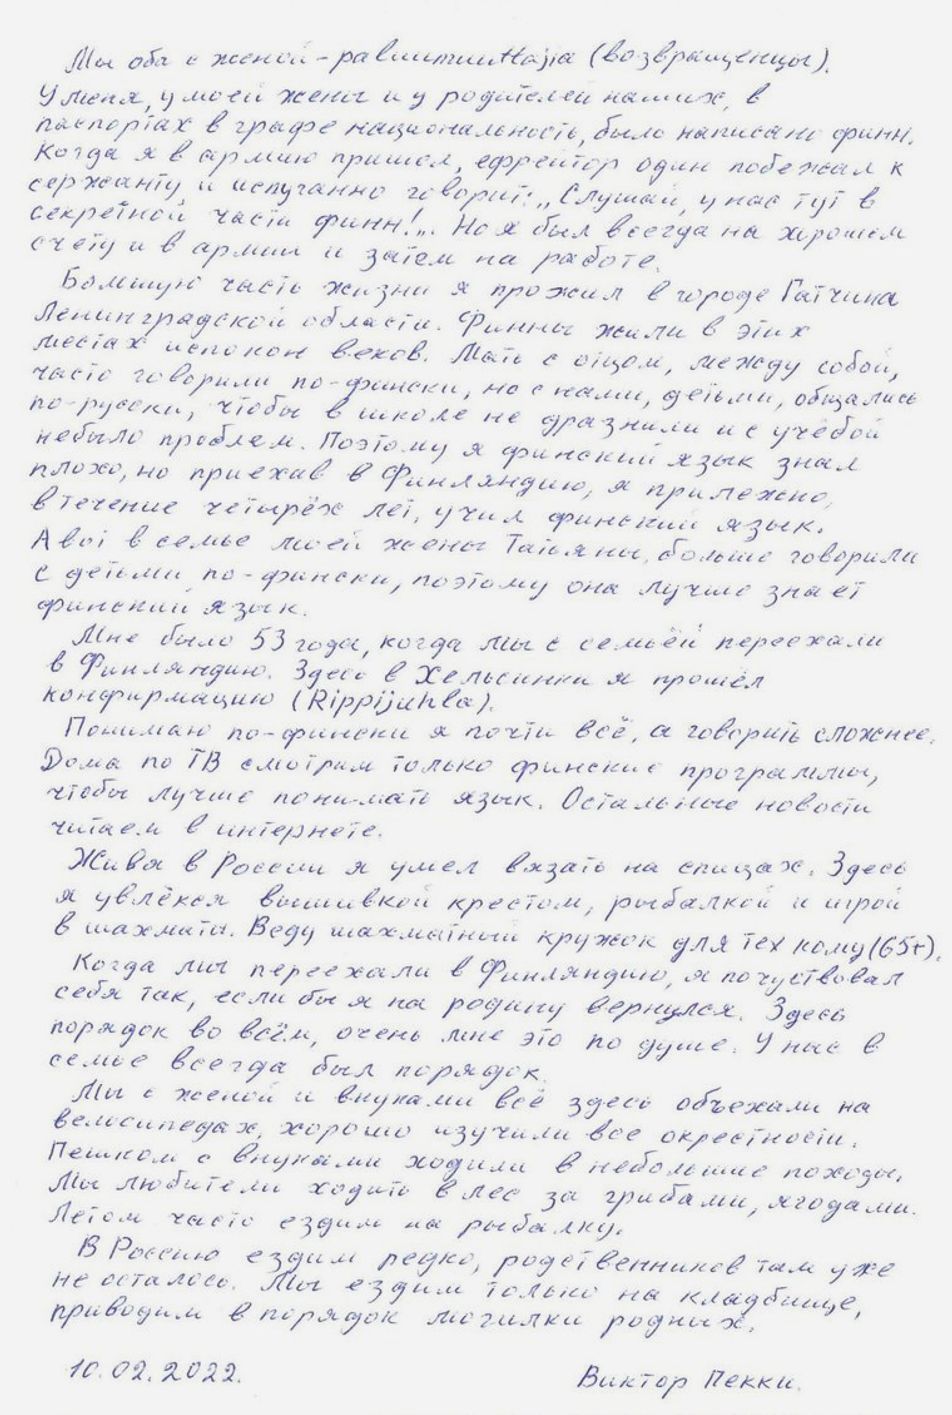 Мы оба с женой - paluumuuttajia (возвращенцы).
У меня, у моей жены и у родителей наших, в
паспортах в графе национальность, было написано финн.
Когда я в армию пришел, ефрейтор один побежал к
сержанту и испуганно говорит: „Слушай, у нас тут в
секретной части финн!„. Но я был всегда на хорошем
счету и в армии и затем на работе.
Большую часть жизни я прожил в городе Гатчина
Ленинградской области. Финны жили в этих
местах испокон веков. Мать с отцом, между собой,
часто говорили по-фински, но с нами, детьми, общались
по-русски, чтобы в школе не дразнили и с учёбой
небыло проблем. Поэтому я финский язык знал
плохо, но приехав в Финляндию, я прилежно,
в течение четырёх лет, учил финский язык.
А вот в семье моей жены Татьяны, больше говорили
с детьми по-фински, поэтому она лучше знает
финский язык.
Мне было 53 года, когда мы с семьёй переехали
в Финляндию. Здесь в Хельсинки я прошёл
конфирмацию (Rippijuhla).
Понимаю по-фински я почти всё, а говорить сложнее.
Дома по ТВ смотрим только финские программы,
чтобы лучше понимать язык. Остальные новости
читаем в интернете.
Живя в России я умел вязать на спицах. Здесь
я увлёкся вышивкой крестом, рыбалкой и игрой
в шахматы. Веду шахматный кружок для тех кому (65+).
Когда мы переехали в Финляндию, я почуствовал
себя так, если бы я на родину вернулся. Здесь
порядок во всём, очень мне это по душе. У нас в
семье всегда был порядок.
Мы с женой и внуками всё здесь объехали на
велосипедах, хорошо изучили все окрестности.
Пешком с внуками ходили в небольшие походы.
Мы любители ходить в лес за грибами, ягодами.
Летом часто ездим на рыбалку.
В Россию ездим редко, родственников там уже
не осталось. Мы ездим только на кладбище,
приводим в порядок могилки родных.
10.02.2022.
Виктор Пекки.